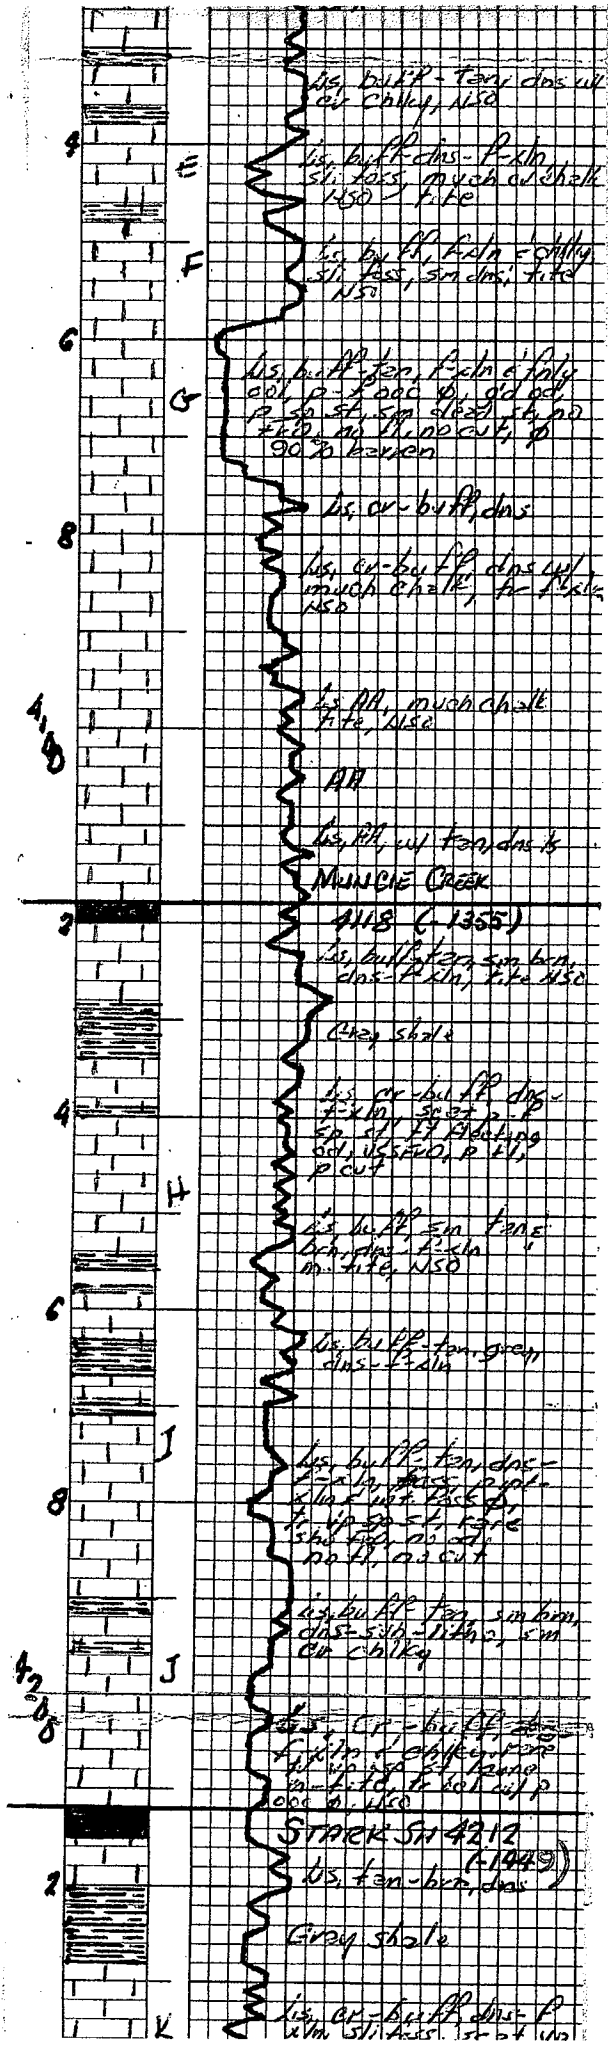 Ls, buff-tan, dns w/
cr chlky, NSO
4
E
Ls, buff-dns-f-xln,
sli foss, much cr chalk
NSO - tite
F
Ls, buff, f-xln & chlky,
sli foss, sm dns, tite
NSO
6
G
Ls, buff-tan, f-xln & fnly
ool, p-f ooc ϕ, gd od,
p sp st, sm dead st, no
fr o, no fl, no cut, ϕ
90% barren
Ls, cr-buff, dns
8
Ls, cr-buff, dns w/
much chalk, tr f-xln
NSO
Ls AA, much chalk
tite, NSO
4,
AA
Ls, AA, w/ tan, dns ls
MUNCIE CREEK
2
4118 (-1355)
Ls, buff, tan, sm brn,
dns-f-xln, tite NSO
Gray shale
Ls, cr-buff, dns-
f-xln, scat p-f
sp st, floating
od, VSSFO, p fl,
p cut
4
H
Ls buff, sm tan &
brn, dns-f-xln
m. tite, NSO
6
Ls, buff-tan, gray,
dns-f-xln
I
Ls, buff, tan, dns-
f-xln, foss, p ipt-
xln & int foss ϕ,
tr vp sp st, rare
sho fo, no od,
no fl, no cut
8
Ls, buff-tan, sm brn,
dns-sub-litho, sm
cr chlky
J
Ls, cr-buff, dns
f-xln & chlky, rare
tr vp sp st, none
in-tite, tr ool w/ p
ooc ϕ, NSO
STARK SH 4212
(-1449)
2
Ls, tan-brn, dns
Gray shale
K
Ls, cr-buff, dns-f
xln sli foss, scat vp